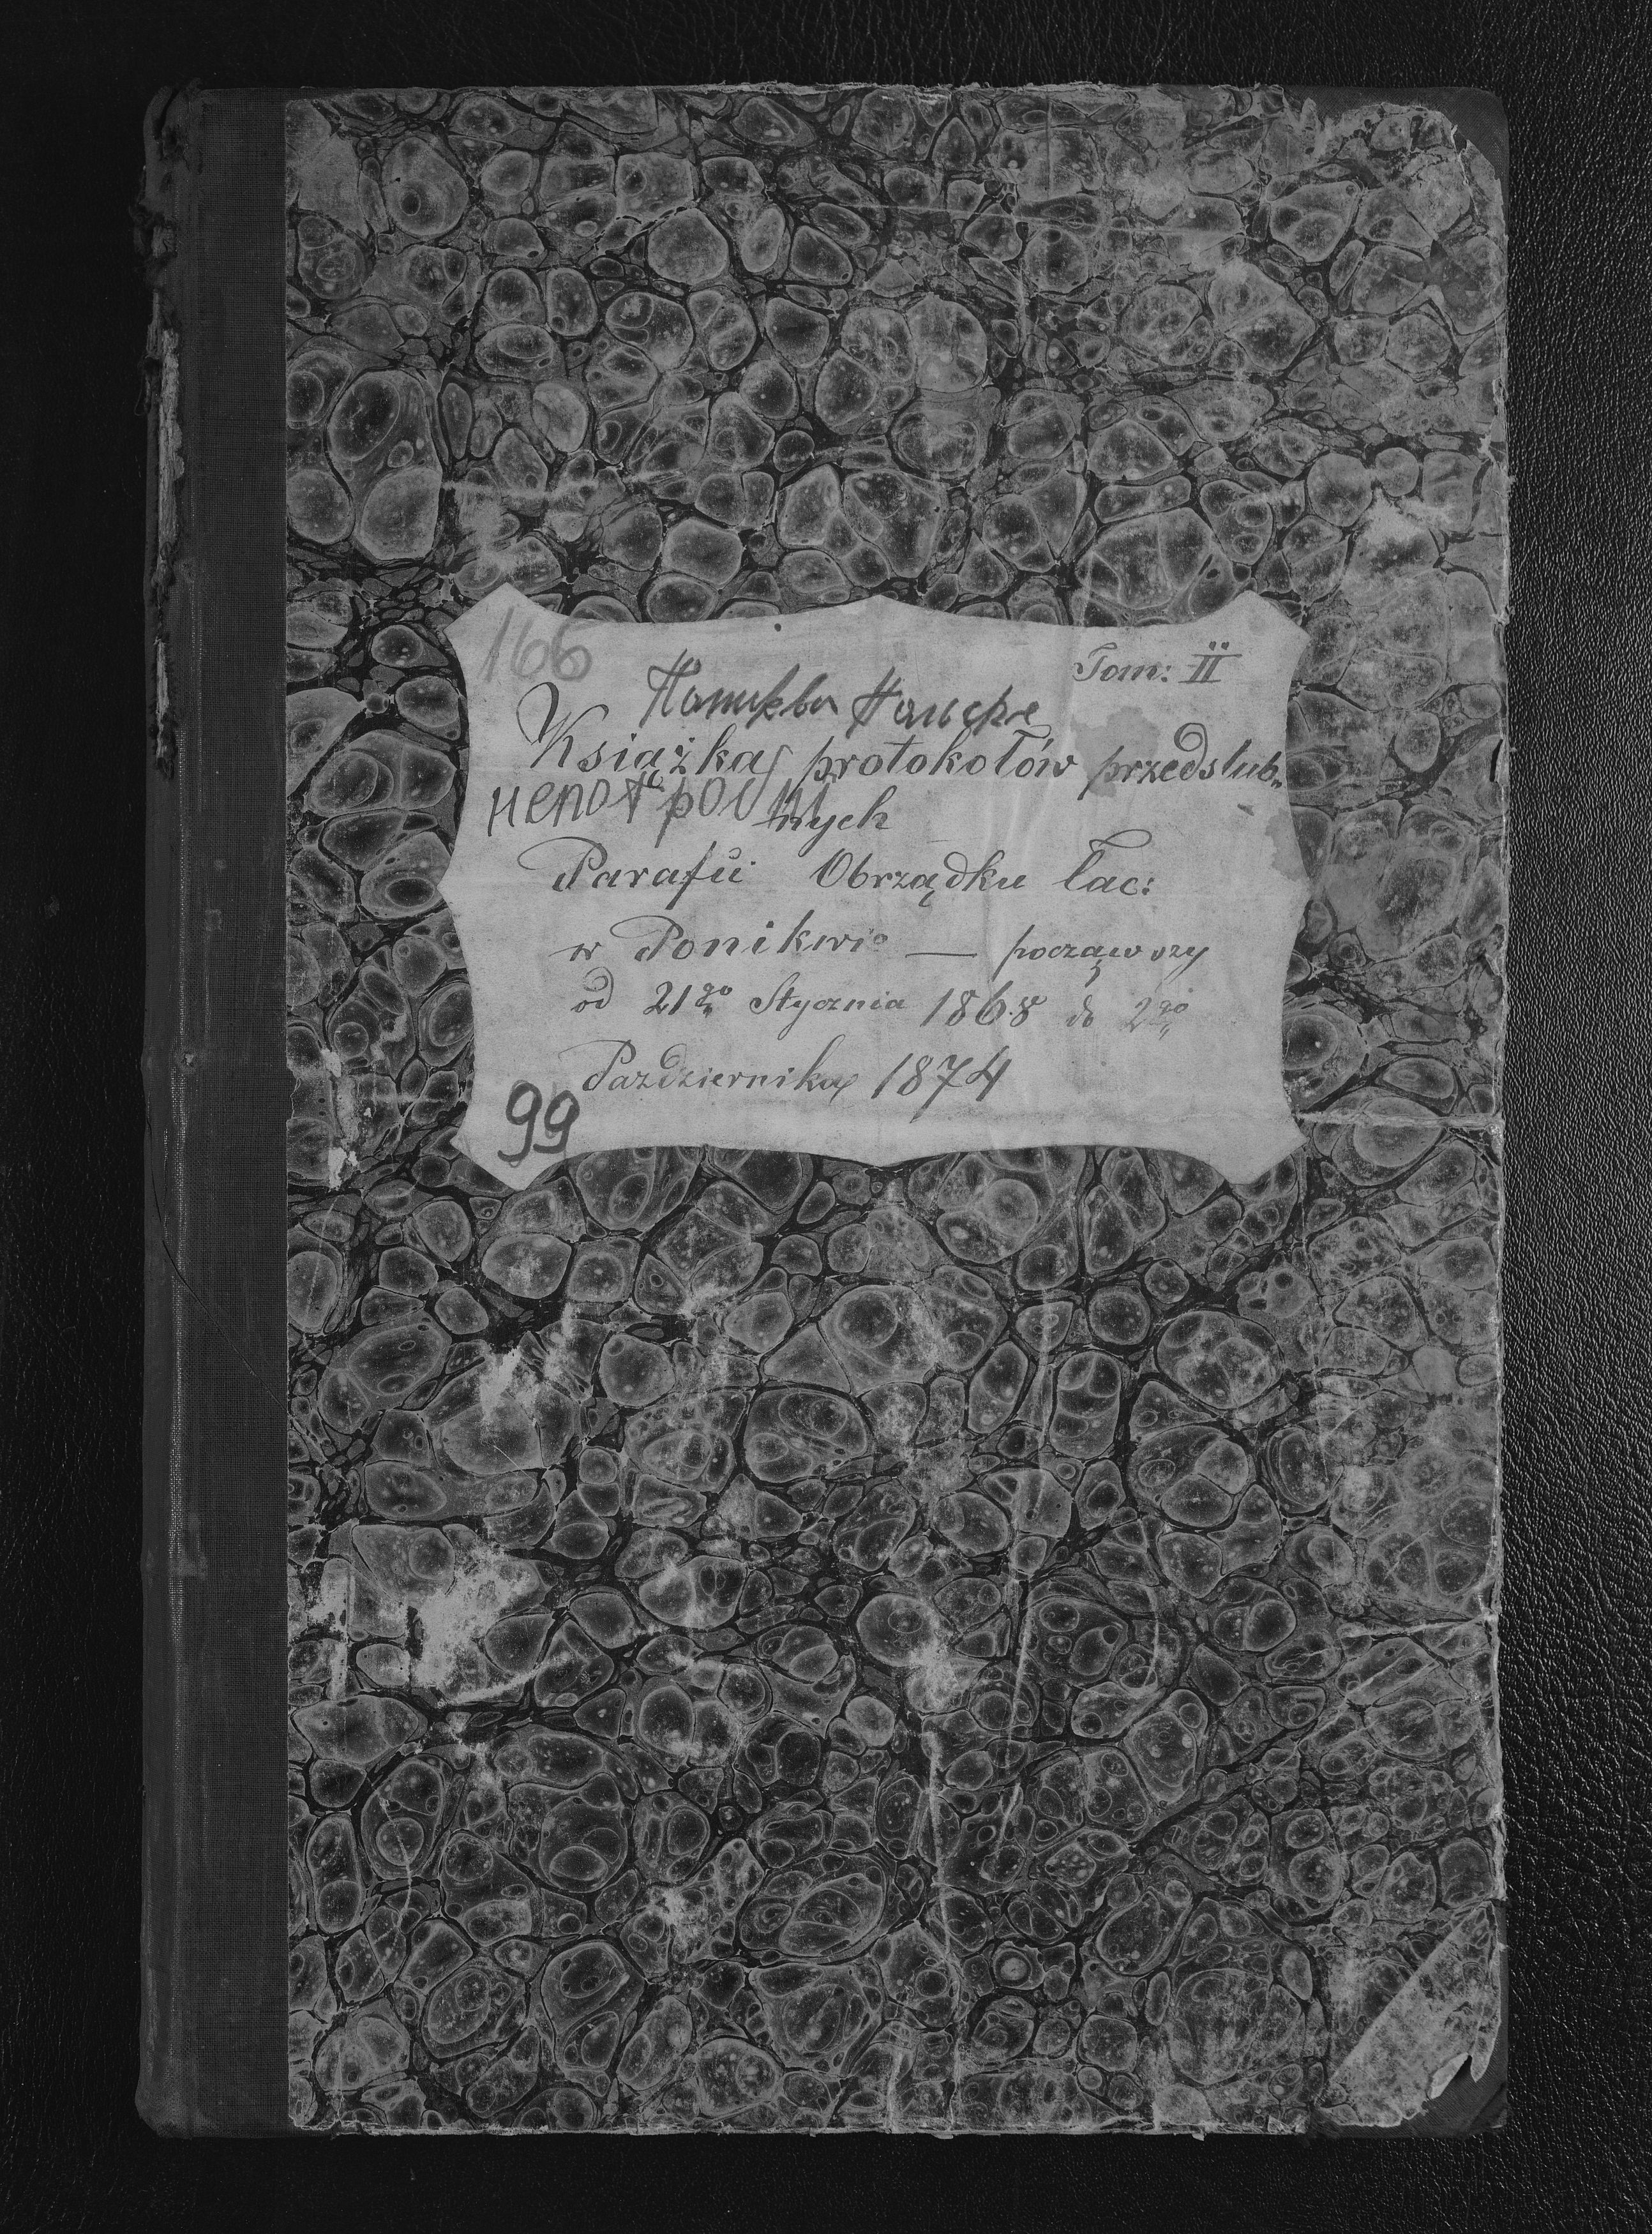 166
Tom: II
Książka protokołów przedślub„
непотр
nych
Parafii Obrządku łac:
w Ponikwie — począwszy
od 21go Stycznia 1868 do 2go
Października 1874
99